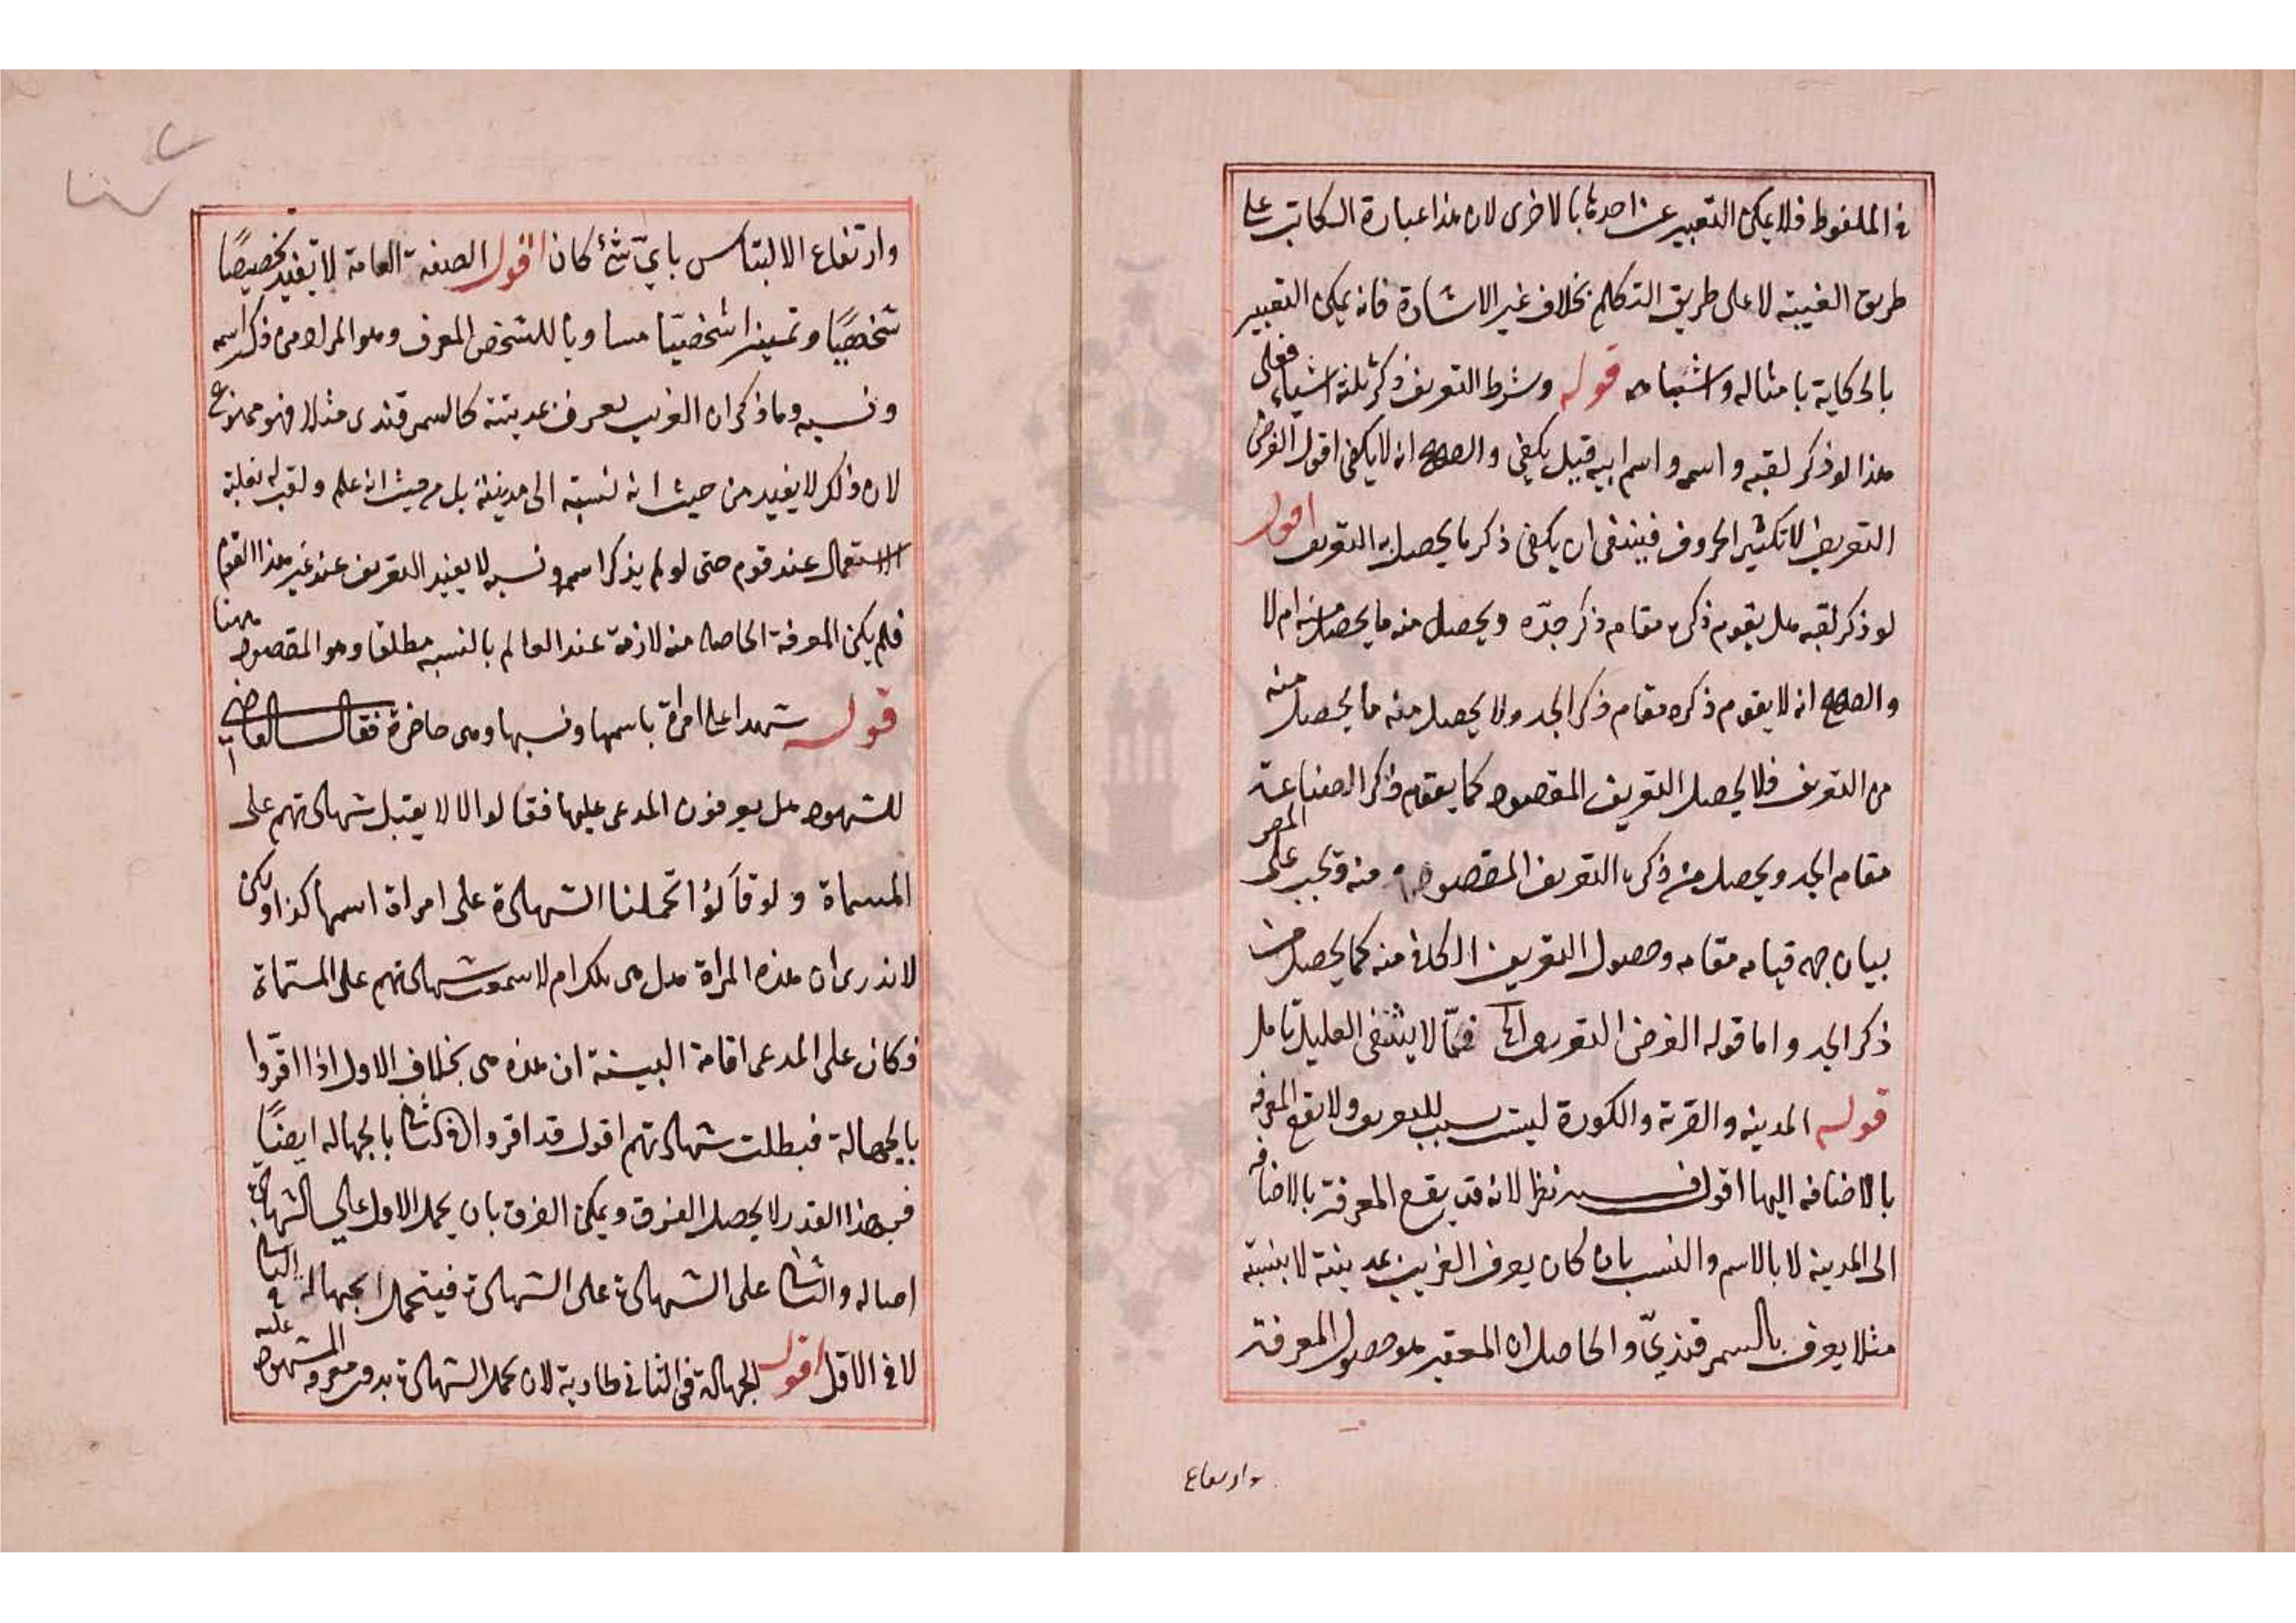 في الملفوظ فلا يمكن التعبير عن احدهما بالاخرى لان هذا عبارة الكاتب على
طريق الغيبة لا على طريق التكلم بخلاف غير الاشارة فانه يمكن التعبير
بالحكاية بامثاله واشباهه قوله وشرط التعريف ذكر ثلثة اشياء فعلى
هذا لو ذكر لقبه واسمه واسم ابيه قيل يكفى والصحيح انه لا يكفى اقول الغرض
التعريف لا تكثير الحروف فينبغى ان يكفى ذكر ما يحصل به التعريف اقول
لو ذكر لقبه هل يقوم ذكره مقام ذكر جدّه ويحصل منه ما يحصل منه ام لا
والصحيح انه لا يقوم ذكره مقام ذكر الجد ولا يحصل منه ما يحصل منه
من التعريف فلا يحصل التعريف المقصود كما يقوم ذكر الصناعة
مقام الجد ويحصل من ذكره التعريف المقصود منه ويجب على المصر
بيان جهه قيامه مقامه وحصول التعريف الكافى منه كما يحصل من
ذكر الجد واما قوله الغرض التعريف الخ فممّا لا يشفى العليل تامل
قوله المدينه والقرية والكورة ليست بسبب للتعريف ولا تقع المعرفه
بالاضافه اليها اقول فيه نظر لانه قد يقع المعرفة بالاضافه
الى المدينه لا بالاسم والنسب بان كان يعرف الغريب بمدينته لا بنسبته
مثلا يعرف بالسمرقنديّ والحاصل ان المعتبر هو حصول المعرفة
وارتفاع
وارتفاع الالتباس بايّ شئ كان اقول الصفة العامة لا تفيد تخصيصًا
شخصيًا وتمييزا شخصيّا مساويا للشخص المعرف وهو المراد من ذكر اسمه
ونسبه وما ذكر ان الغريب يعرف بمدينته كالسمرقندى مثلا فهو ممنوع
لان ذلك لا يفيد من حيث انه نسبته الى مدينته بل من حيث انه علم ولقب له لغلبة
الاستعمال عند قوم حتى لو لم يذكر اسمه ونسبه لا يفيد التعريف عند غير هذا القوم
فلم يكن المعرفة الحاصله منه لازمة عند العالم بالنسبه مطلقا وهو المقصود ههنا
قوله شهدا على امراة باسمها ونسبها وهى حاضرة فقال القاضى
للشهود هل يعرفون المدعى عليها فقالوا لا لا يقبل شهادتهم على
المسماة ولو قالوا تحملنا الشهادة على امراة اسمها كذا ولكن
لا ندرى ان هذه المراة هل هى تلك ام لا سمعت شهادتهم على المسمّاة
وكان على المدعى اقامة البينة ان هذه هى بخلاف الاول اذا اقرّوا
بالجهالة فبطلت شهادتهم اقول قد اقروا فى الثانى بالجهاله ايضًا
فبهذا القدر لا يحصل الفرق ويمكن الفرق بان يحمل الاول على الشهادة
اصاله والثانى على الشهادة على الشهادة فيتحمل الجهالة فى الثانى
لا فى الاول اقول الجهالة فى الثانى طارية لان تحمل الشهادة بدون معرفه المشهود عليه